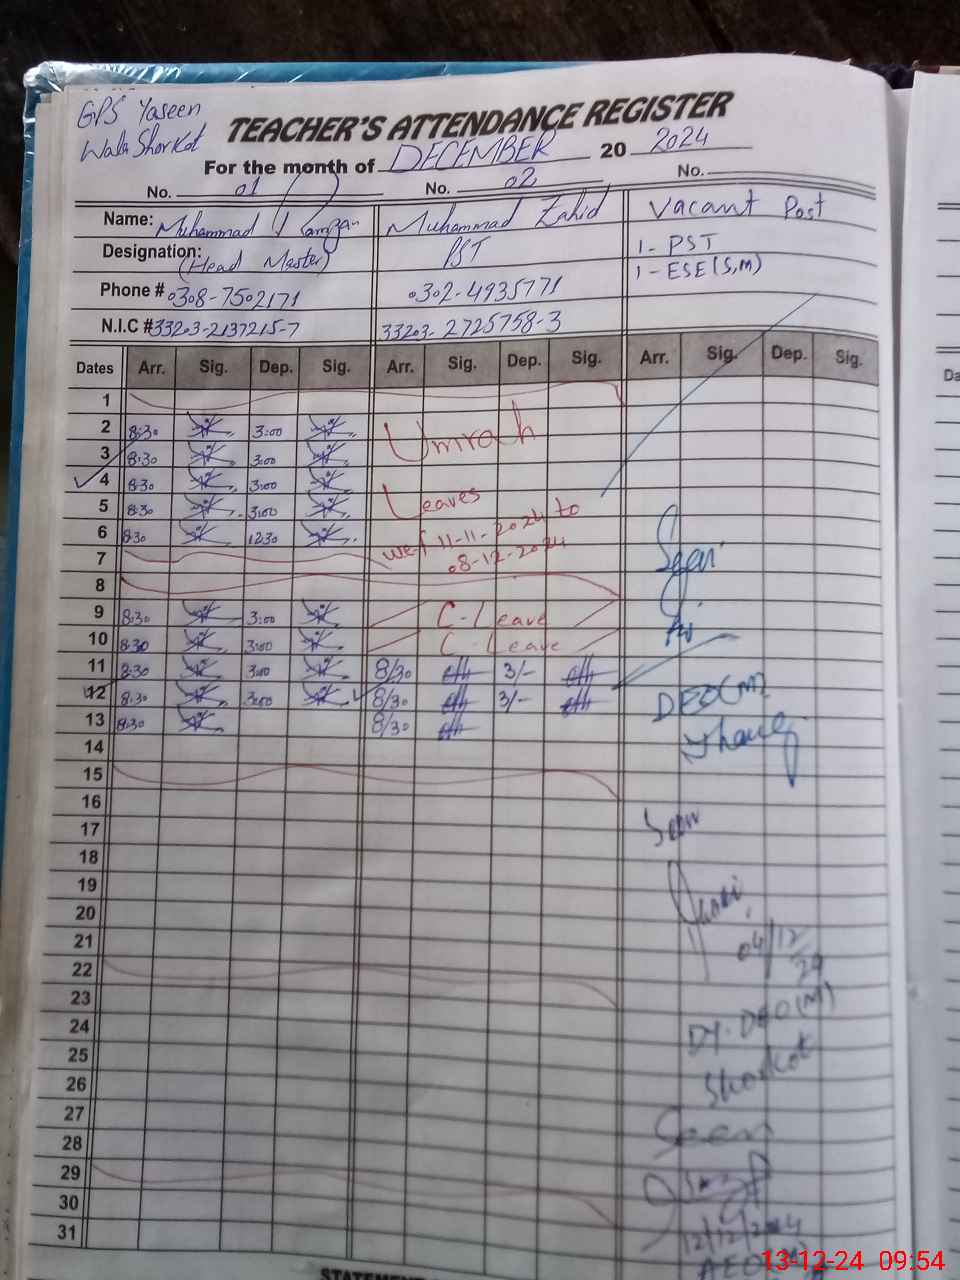 GPS Yaseen
Wala Shorkot
TEACHER'S ATTENDANCE REGISTER
For the month of DECEMBER 20 2024
No. 01 No. 02 No.
Name: Muhammad Ramzan Muhammad Zahid Vacant Post
Designation: (Head Master) PST 1- PST
1- ESE (S,M)
Phone # 0308-7502171 0302-4935771
N.I.C # 33203-2137215-7 33203-2725758-3
Dates Arr. Sig. Dep. Sig. Arr. Sig. Dep. Sig. Arr. Sig. Dep. Sig.
1
2 8:30 3:00 Umrah
3 8:30 3:00
4 8:30 3:00
5 8:30 3:00 Leaves
6 8:30 12:30 w.e.f 11-11-2024 to
7 08-12-2024
8
9 8:30 3:00 C-Leave
10 8:30 3:00 C-Leave
11 8:30 3:00 8/30 3/-
12 8:30 3:00 8/30 3/- DEO(M)
13 8:30 8/30
14
15
16
17 Seen
18
19
20
21 04/12/24
22
23
24 DY. DEO(M)
25
26 Shorkot
27
28 Seen
29
30
31 12/12/2024
AEO
STATEMENT
13-12-24 09:54